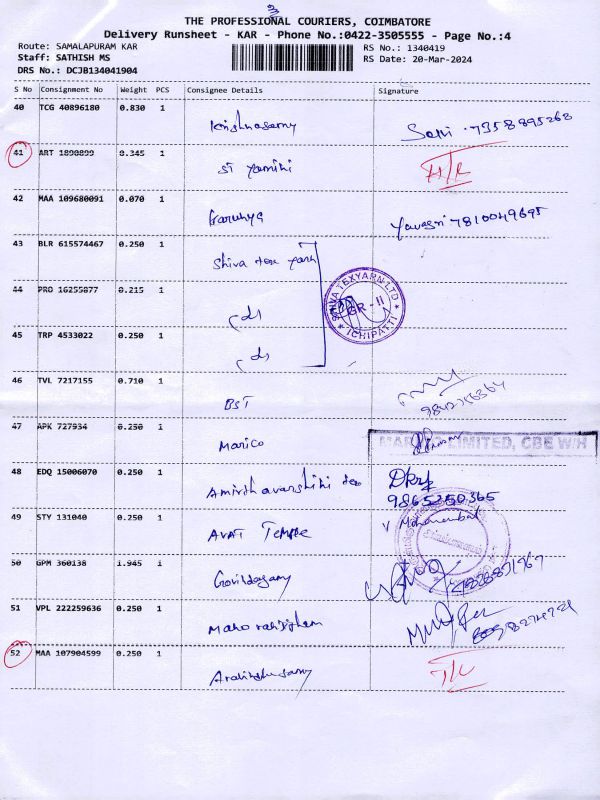 THE PROFESSIONAL COURIERS, COIMBATORE
Delivery Runsheet - KAR - Phone No.:0422-3505555 - Page No.:4
Route: SAMALAPURAM KAR RS No.: 1340419
Staff: SATHISH MS RS Date: 20-Mar-2024
DRS No.: DCJB134041904
S No Consignment No Weight PCS Consignee Details Signature
40 TCG 40896180 0.830 1
Krishnasamy 7358895268
41 ART 1890899 0.345 1
ST H/R
42 MAA 109680091 0.070 1
7810049695
43 BLR 615574467 0.250 1
Shiva tex yarn
44 PRO 16255877 0.215 1
SHIVA TEXYARN LTD GR-II ICHIPATTI
45 TRP 4533022 0.250 1
46 TVL 7217155 0.710 1
BST
47 APK 727934 0.250 1
Marico LIMITED, CBE W/H
48 EDQ 15006070 0.250 1
Amirthavarshini tex 9865350365
49 STY 131040 0.250 1
AVAT TEMPLE V
50 GPM 360138 1.945 1
Govindasamy
51 VPL 222259636 0.250 1
52 MAA 107904599 0.250 1